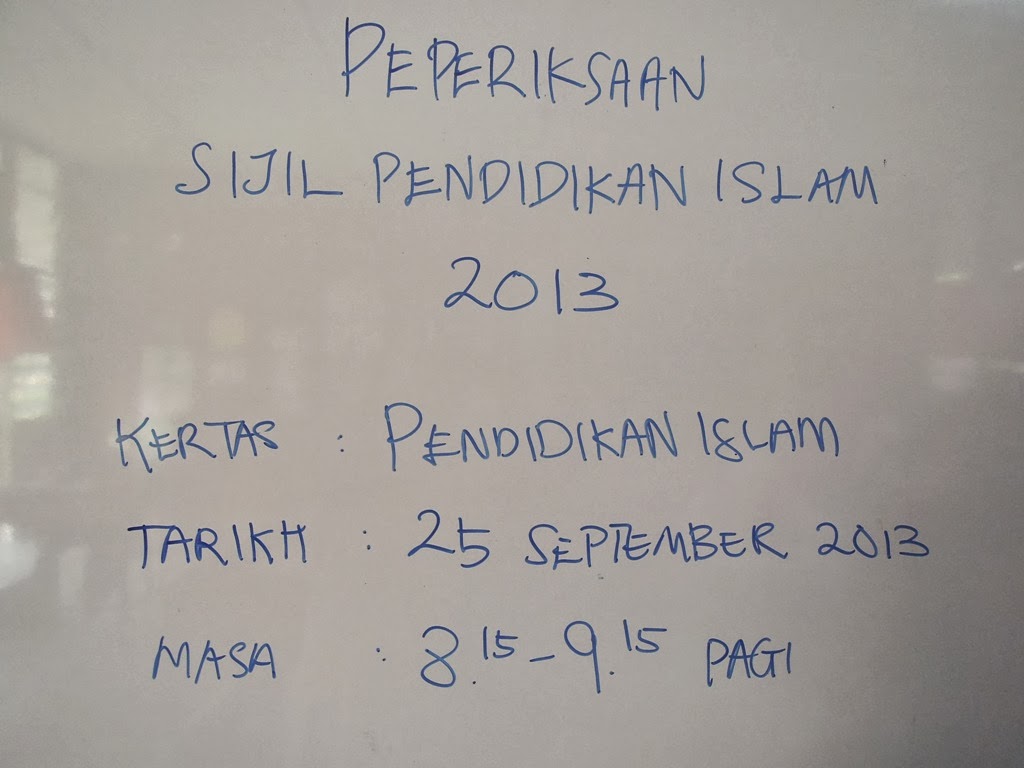 PEPERIKSAAN
SIJIL PENDIDIKAN ISLAM
2013
KERTAS : PENDIDIKAN ISLAM
TARIKH : 25 SEPTEMBER 2013
MASA : 8.15 - 9.15 PAGI